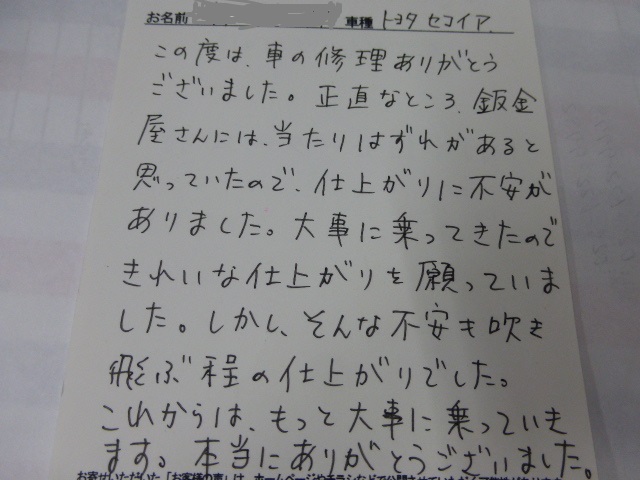 お名前 車種 トヨタ セコイア.
この度は、車の修理ありがとう
ございました。正直なところ、鈑金
屋さんには、当たりはずれがあると
思っていたので、仕上がりに不安が
ありました。大事に乗ってきたので
きれいな仕上がりを願っていま
した。しかし、そんな不安も吹き
飛ぶ程の仕上がりでした。
これからは、もっと大事に乗っていき
ます。本当にありがとうございました。
お寄せいただいた「お客様の声」は、ホームページやチラシなどで公開させていただく